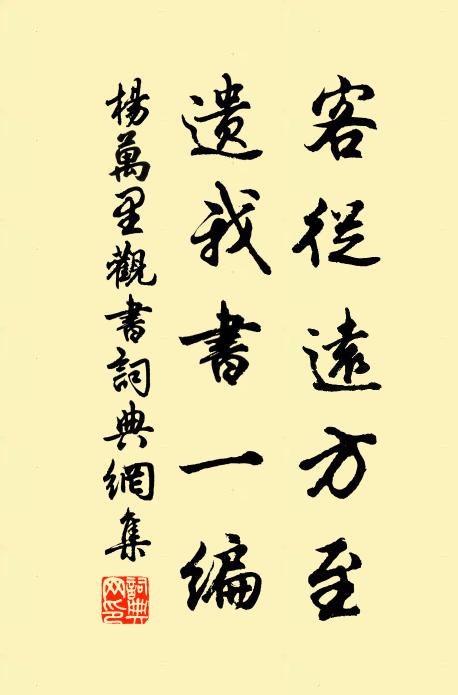 客從遠方至
遺我書一編
楊萬里觀書詞典網集
詞典網印